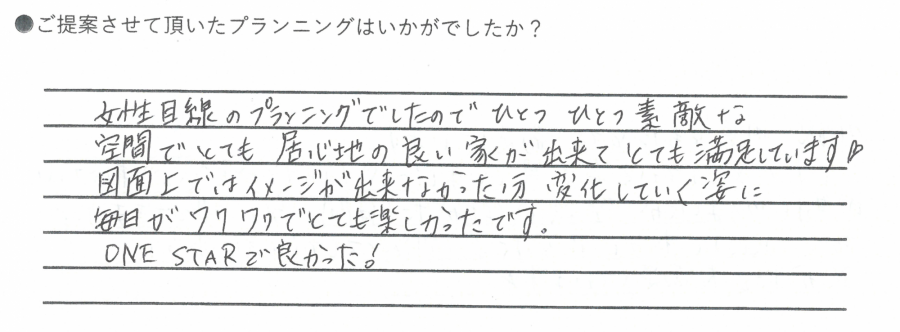 ●ご提案させて頂いたプランニングはいかがでしたか？
女性目線のプランニングでしたので ひとつ ひとつ 素敵な
空間でとても 居心地の良い 家が出来て とても満足しています♪
図面上ではイメージが出来なかった分 変化していく姿に
毎日がワクワクでとても楽しかったです。
ONE STARで良かった！